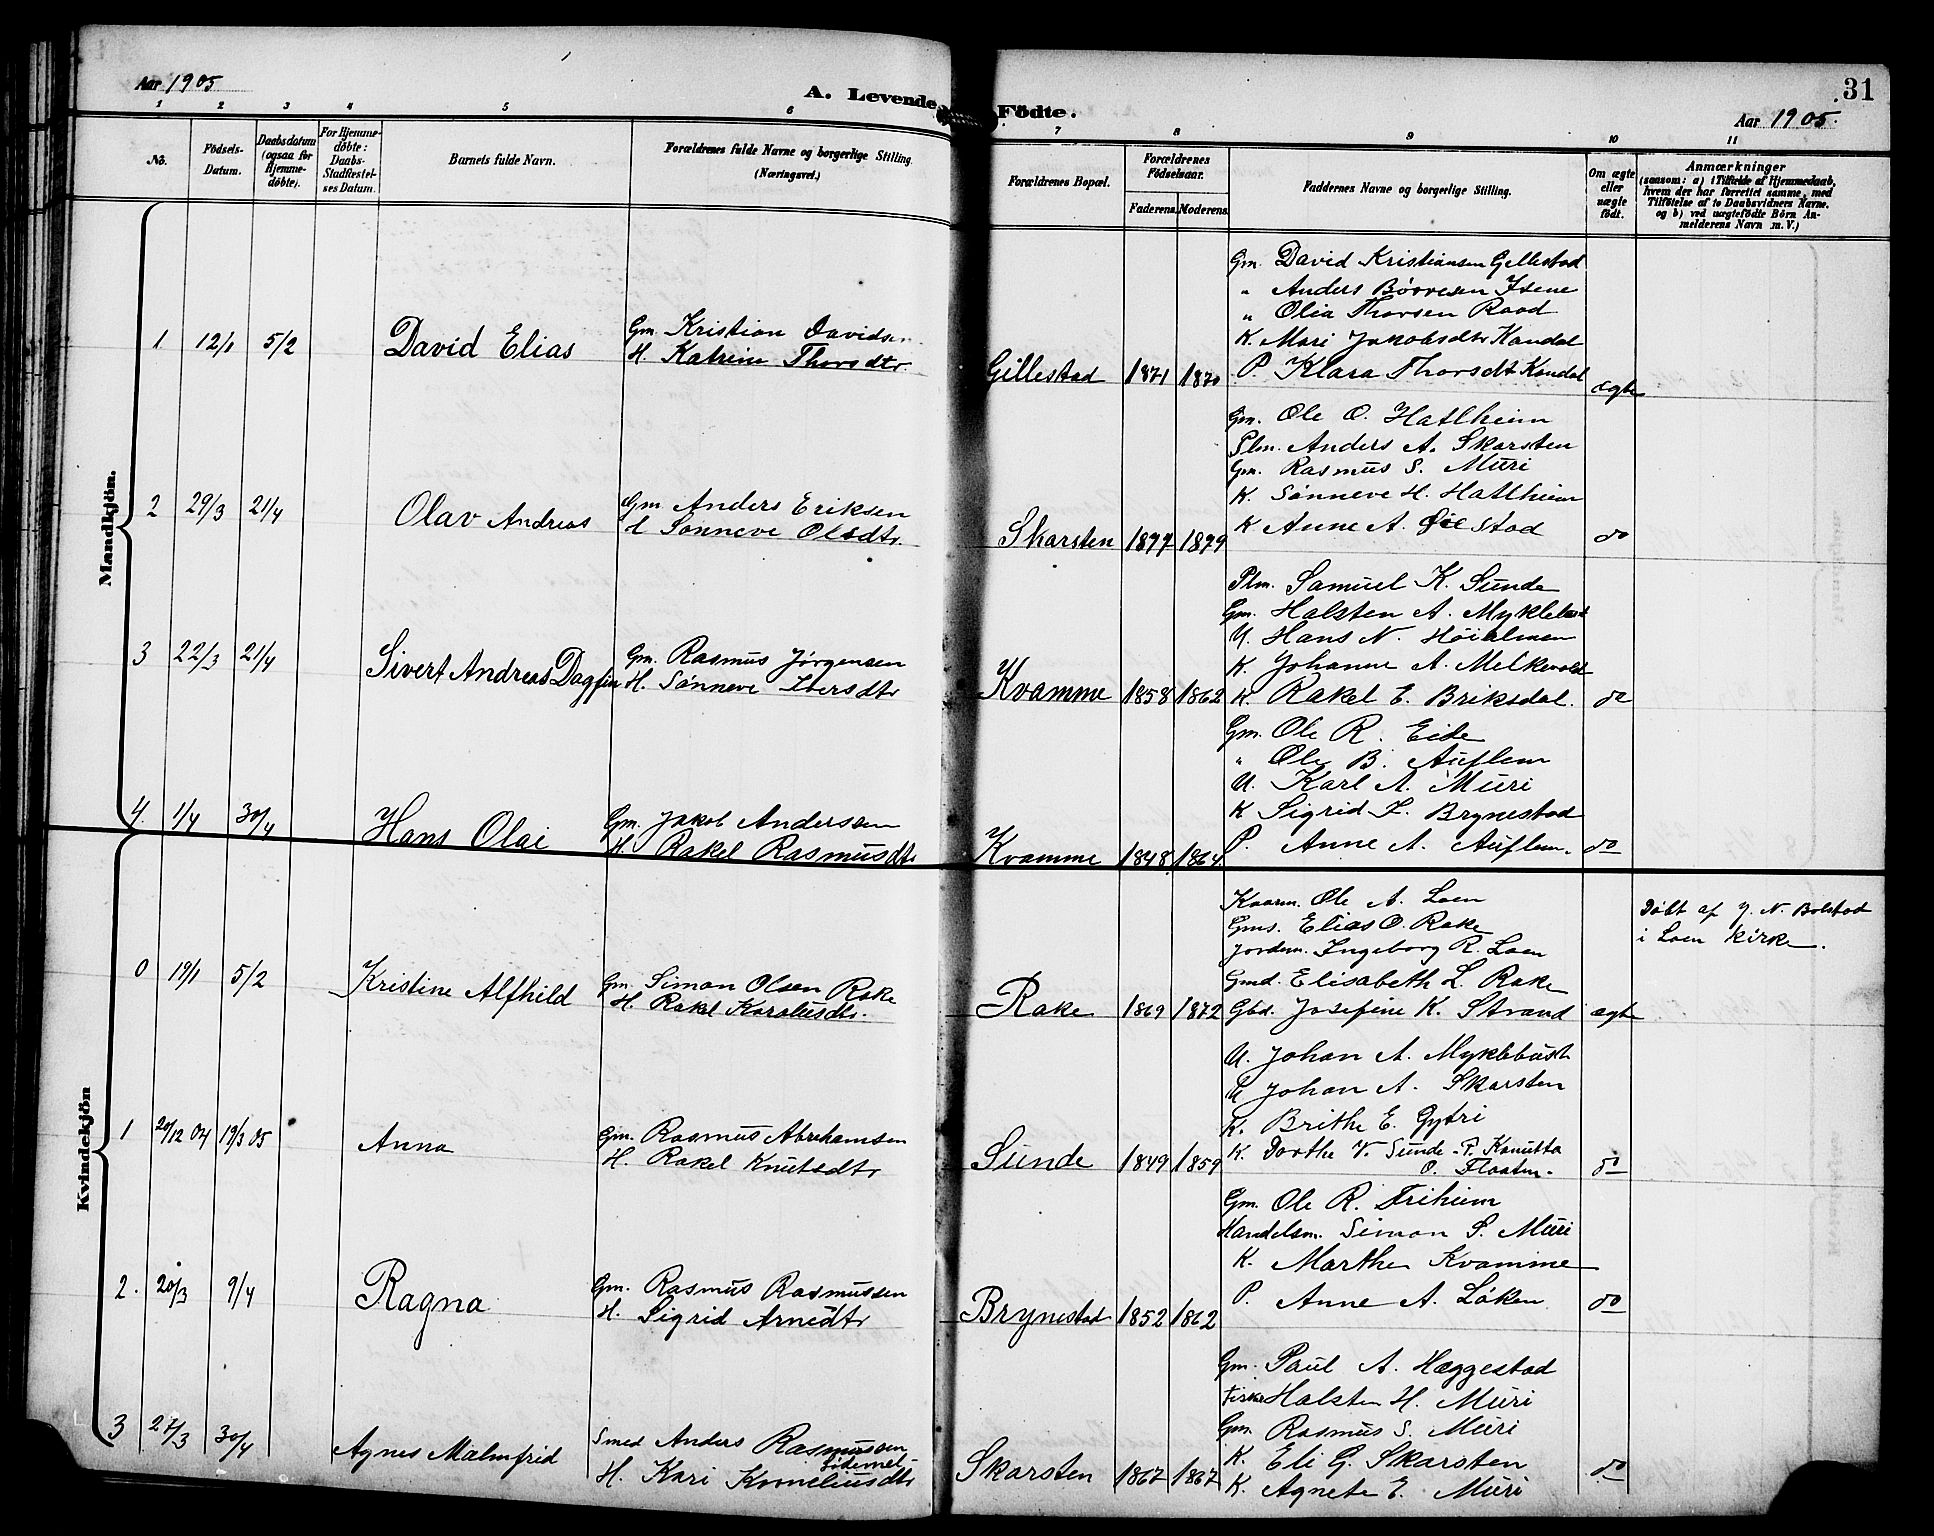 Aar 1905
A. Levende Födte.
31
Aar 1905.
1 2 3 4 5 6 7 8 9 10 11
No.
Födsels-
Datum.
Daabsdatum
(ogsaa for
Hjemme-
døbte).
For Hjemme-
døbte:
Daabs-
Stadfæstel-
ses Datum.
Barnets fulde Navn.
Forældrenes fulde Navne og borgerlige Stilling.
(Næringsvei.)
Forældrenes Bopæl.
Forældrenes
Födselsaar.
Faderens. Moderens.
Faddernes Navne og borgerlige Stilling.
Om ægte
eller
uægte
født.
Anmærkninger
(saasom: a) i Tilfælde af Hjemmedaab,
hvem der har forrettet samme, med
Tilföielse af to Daabsvidners Navne.
og b) ved uægtefödte Börn An-
melderens Navn m. V.)
Mandkjön.
1 12/1 5/2 David Elias
Gm. Kristian Davidsen
H. Katrine Thorsdtr.
Gillestad 1871 1870
Gm. David Kristiansen Gellestad
" Anders Børresen Isene
" Olia Thorsen Raad
K. Mari Jakobsdtr Kandal
P. Klara Thorsdt Kandal
ægte
2 29/3 21/4 Olav Andreas
Gm Anders Eriksen
H Sønneve Olsdtr.
Skarsten 1877 1879
Gm. Ole O. Hatlheim
Plm. Anders A. Skarsten
Gm. Rasmus S. Muri
K. Sønneve H. Hatlheim
K Anne A. stad
do
3 22/3 21/4 Sivert Andreas Dagfin
Gm. Rasmus Jørgensen
H. Sønneve Ibersdtr
Kvamme 1858 1862
Plm. Samuel K. Sunde
Gm. Halsten A. Myklebust
U. Hans N. Høialmen
K. Johanne A. Melkevold
K. Rakel E. Briksdal.
do
4. 1/4 30/4 Hans Olai
Gm. Jakob Anderssen
H. Rakel Rasmusdtr
Kvamme 1848 1864.
Gm. Ole R. Eide
" Ole B. Auflem
U. Karl A. Muri
K Sigrid I. Brynestad
P. Anne A. Auflem.
do
Kvindekjön
0 19/1 5/2 Kristine Alfhild
Gm. Simon Olsen Rake
H. Rakel Karolusdtr.
Rake 1869 1872
Kaarm. Ole A. Loen
Gms. Elias O. Rake
Jordem. Ingeborg R. Loen
Gmd. Elisabeth L. Rake
Gbd. Josefine K. Strand
ægte
Døbt af J. N. Bolstad
i Loen kirke.
1 20/12 04 19/3 05 Anna
Gm. Rasmus Abrahamsen
H. Rakel Knutsdtr
Sunde 1849 1859
U. Johan A. Myklebust
U Johan A. Skarsten
K. Brithe E. Gytri
K. Dorthe V. Sunde - P. Kanutta
O. Flaaten.
do
2. 20/3 9/4 Ragna
Gm. Rasmus Rasmussen
H. Sigrid Arnedtr
Brynestad 1852 1862
Gm. Ole R. Friheim
Handelsm. Simon S. Muri
K. Marthe Kvamme
P. Anne A. Løken
do
3 27/3 30/4 Agnes Malmfrid
Smed Anders Rasmussen
Lødemel
H. Kari Korneliusdtr
Skarsten 1867 1867
Gm. Paul A. Hæggestad
Halsten H. Muri
Gm. Rasmus S. Muri
K. Eli G. Skarsten
K. Agnete E. Muri
do